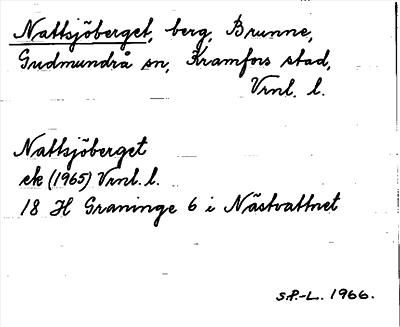 Nattsjöberget, berg, Brunne,
Gudmundrå sn, Kramfors stad,
Vrnl. l.
Nattsjöberget
ek (1965) Vrnl. l.
18 H Graninge 6 i Nästvattnet
S.P.-L. 1966.